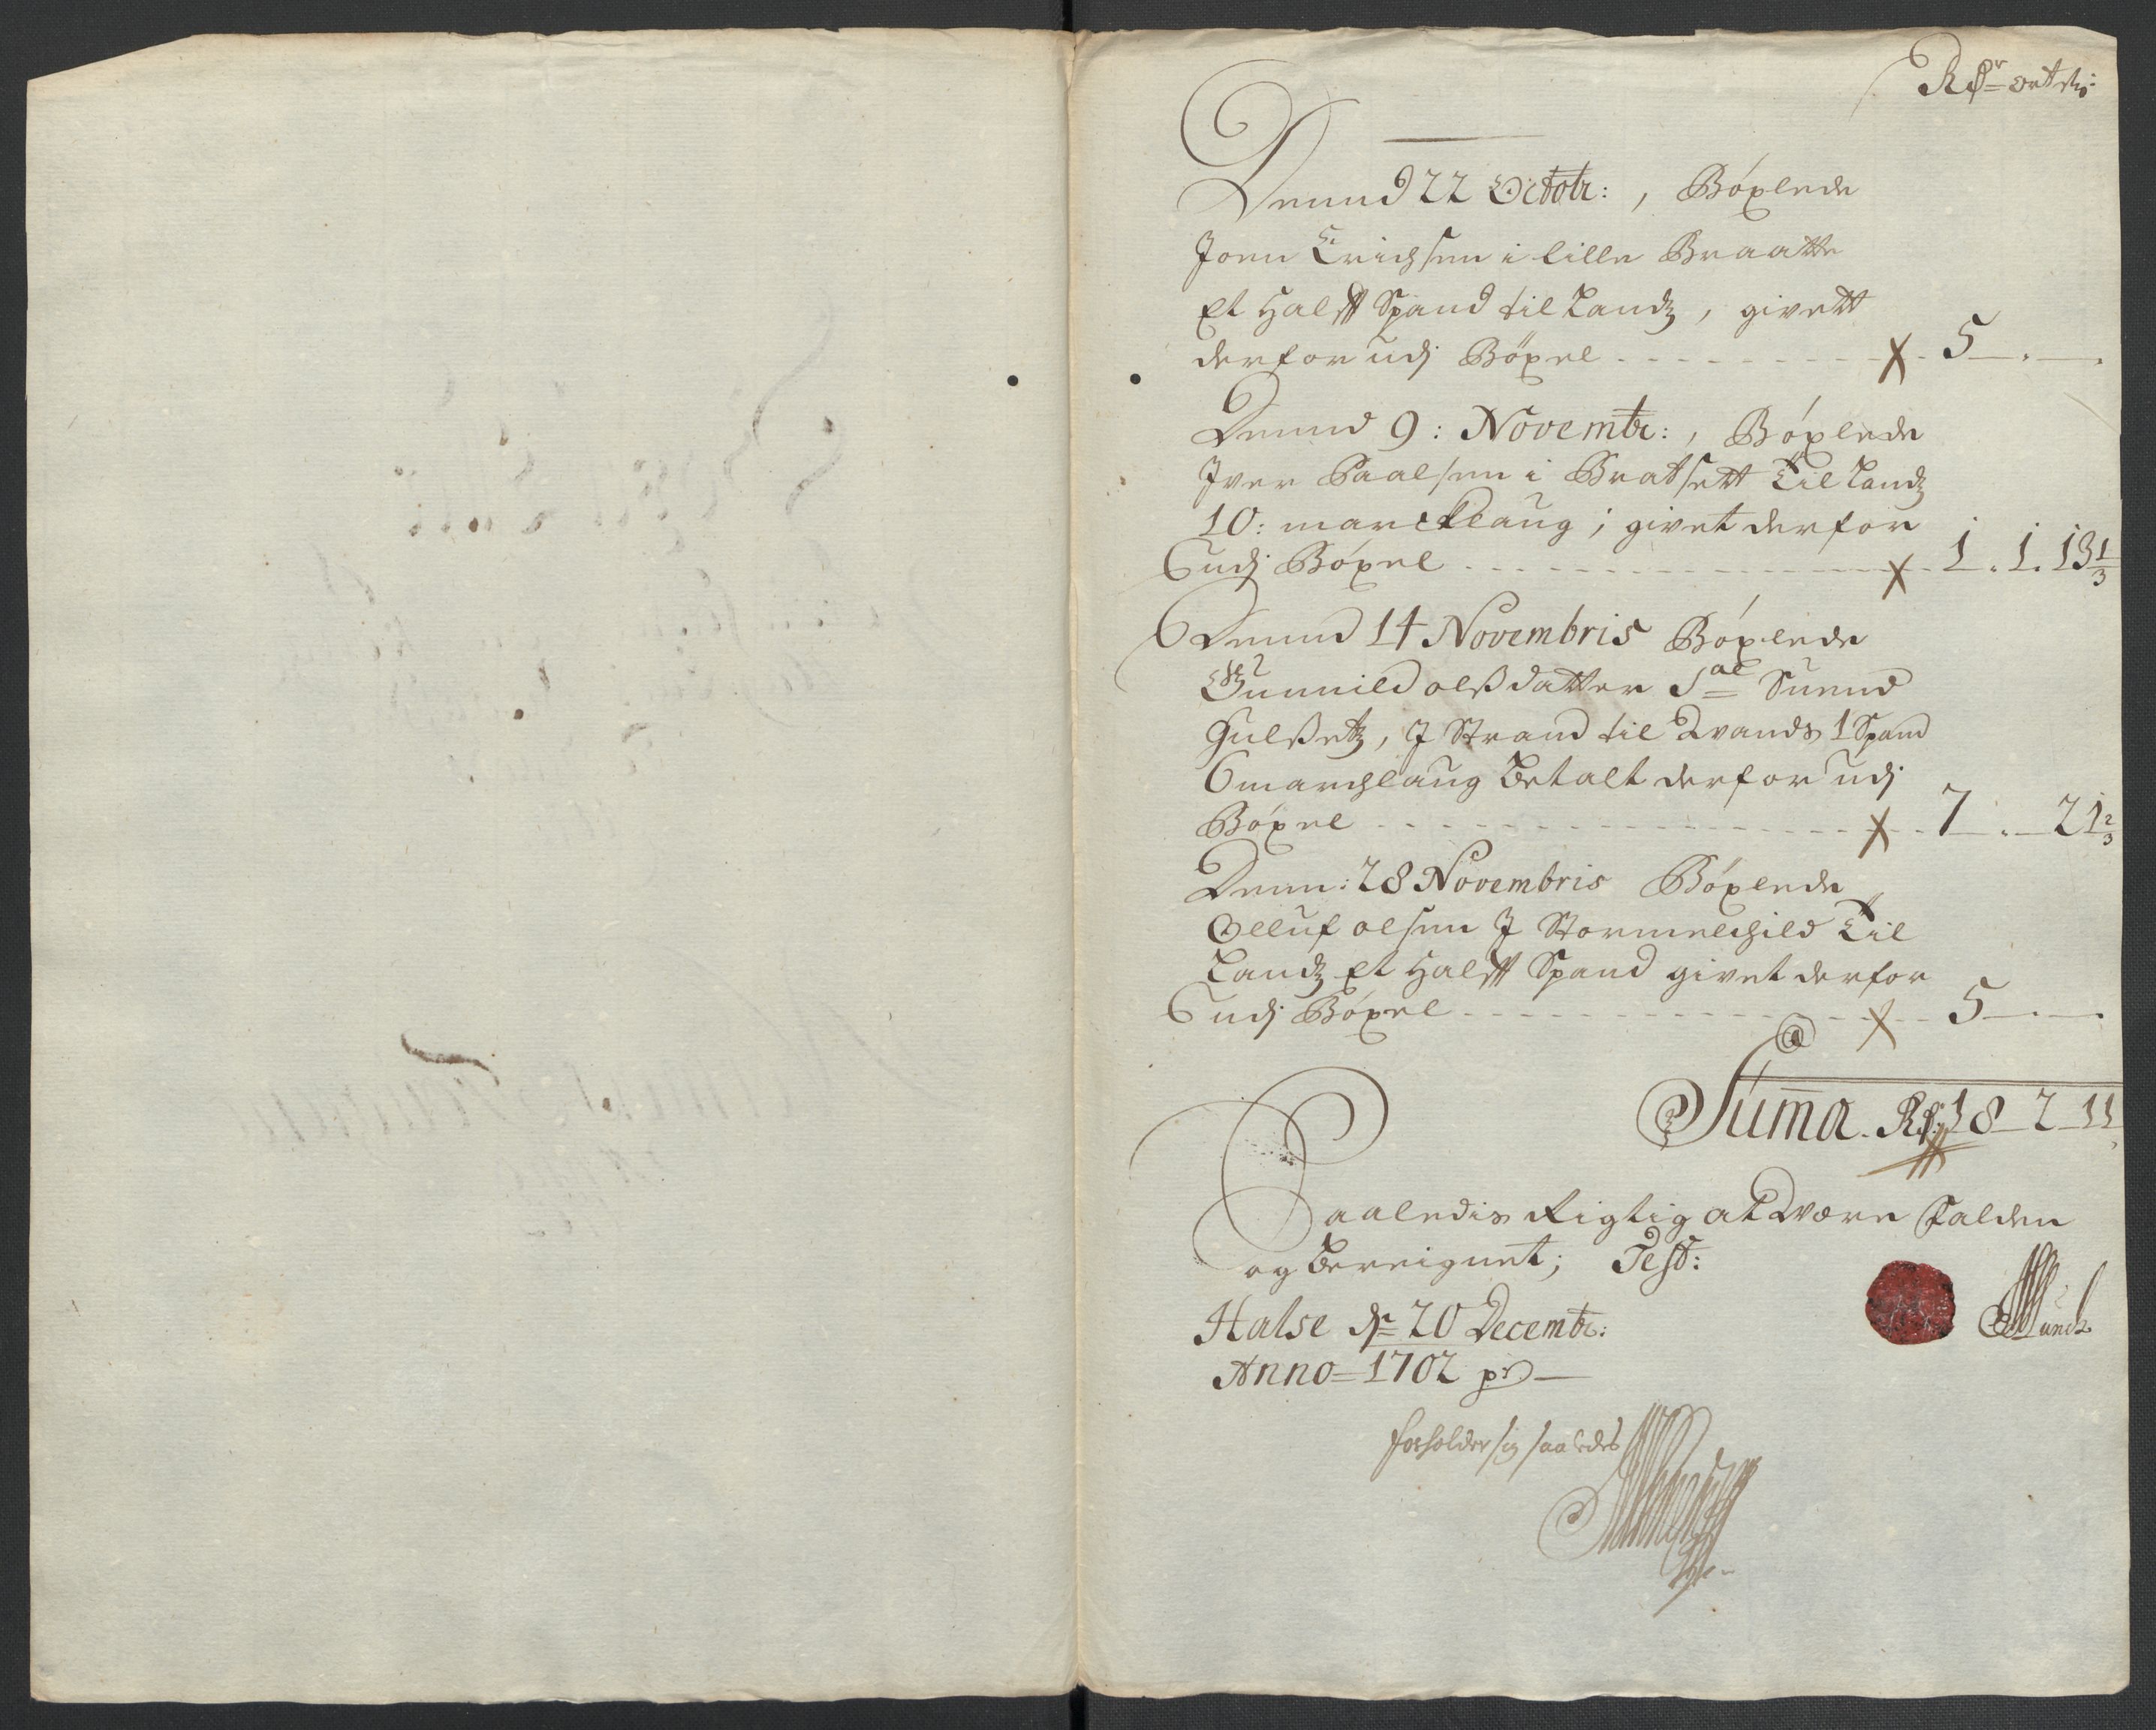 Rdr ort ß:
Dennd 22 Octobr: , Böxlede
Joen Erichsen i lille Braatte
Et Halfft Spand til Landz, givett
derfor udj Böxel - - - 5 - . - .
Dennd 9: Novembr: , Böxlede
Iver Paalsen i Bratsett Til Landz
10: marcklaug; givet derfor
udj Böxel - - - 1. 1. 13 1/3
Dennd 14 Novembris Böxlede
Gunnild olßdatter Sal Suend
Gulßetz, J Strand til Lvands 1 Spand
6 marchlaug Betalt derfor udj
Böxel - - - 7 . - 21 2/3
Denn: 28 Novembris Böxlede
Olluf olsen J Stormelchild Til
Landz Et Halfft Spand givet derfor
udj Böxel - - - 5 - . - .
Suma. Rd: 18 - 2 - 11
Saaledis Rigtig at være falden
og Bereignet; Test:
Halse dn 20 Decembr:
Anno = 1702
Munch
forholder sig saaledes